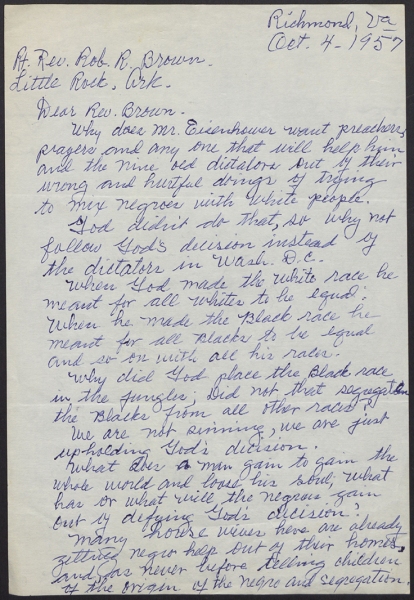 Richmond, Va
Oct. 4 - 1957
Rt. Rev. Rob. R. Brown.
Little Rock, Ark.
Dear Rev. Brown.
Why does Mr. Eisenhower want preachers,
prayers and any one that will help him
and the nine old dictators out of their
wrong and hurtful doings of trying
to mix negroes with white people.
God didn't do that, so why not
follow God's decision instead of
the dictators in Wash. D.C.
When God made the White race he
meant for all Whites to be equal.
When he made the Black race he
meant for all Blacks to be equal
and so on with all his races.
Why did God place the Black race
in the jungles; Did not that segregate
the Blacks from all other races?
We are not sinning, we are just
upholding God's dicision.
What does a man gain to gain the
whole world and loose his soul, what
has or what will the negroes gain
out of defying God's decision?
Many house wives here are already
getting negro help out of their homes,
and, as never before telling children
of the origin of the negro and segregation.